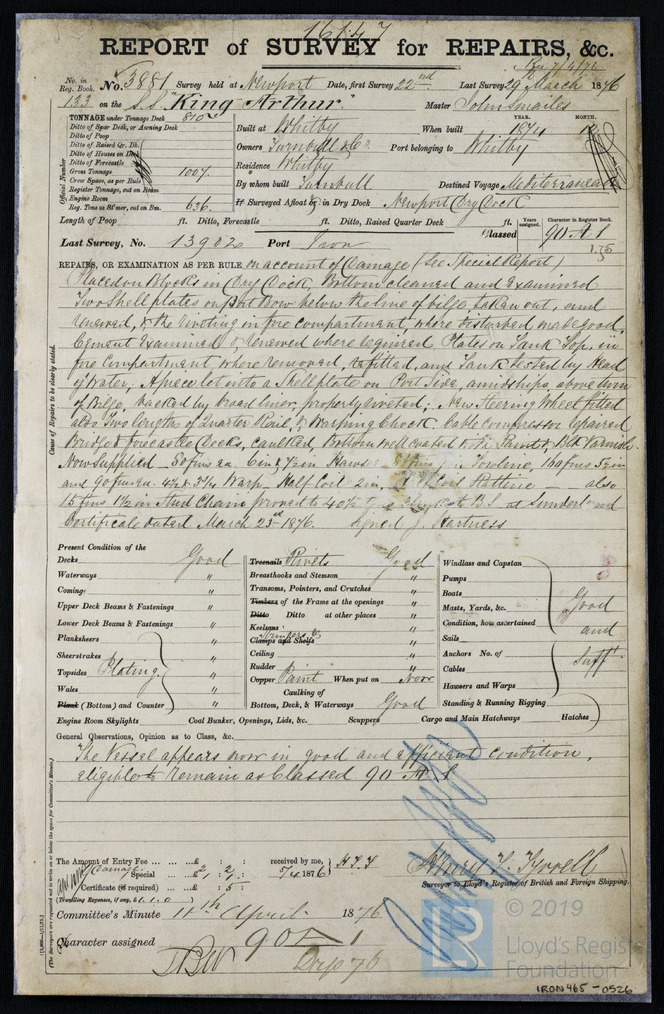 16147
REPORT of SURVEY for REPAIRS, &c.
No. in Reg. Book. No. 3881 Survey held at Newport Date, first Survey 22nd Last Survey 29 March 1876
133 on the S.S. "King Arthur" Master John Smailes
TONNAGE under Tonnage Deck 810
Ditto of Spar Deck, or Awning Deck
Ditto of Poop
Ditto of Raised Qr. Dk.
Ditto of Houses on Deck
Ditto of Forecastle
Gross Tonnage 1007
Crew Space, as per Rule
Register Tonnage, cut on Beam
Engine Room
Reg. Tons as St'mer, cut on Bm. 636
Official Number
Built at Whitby When built YEAR. 1874 MONTH. 12
Owners Turnbull & Co. Port belonging to Whitby
Residence Whitby
By whom built Turnbull Destined Voyage Mediterranean
If Surveyed Afloat or in Dry Dock Newport Dry Dock
Length of Poop ft. Ditto, Forecastle ft. Ditto, Raised Quarter Deck ft.
Classed Years assigned. Character in Register Book. 90 A 1
Last Survey, No. 13902 Port Iron
REPAIRS, OR EXAMINATION AS PER RULE, on account of Damage (See Special Report)
Placed on Blocks in Dry Dock, Bottom cleaned and Examined
Two Shell plates on Port Bow below the line of bilge, taken out, and
renewed, & the Riveting in fore compartment, where disturbed made good,
Cement Examined & renewed where required Plates on Tank Top, in
fore Compartment where removed, refitted, and Tank tested by Head
of Water, A piece let into a Shell plate on Port Side, amidships above turn
of Bilge, backed by broad liner, properly riveted; New Steering Wheel fitted
also Two lengths of Quarter Rail, & Warping Chock, Cable compressor repaired
Bridge & forecastle Decks, caulked, Bottom well coated with Paint & Blk Varnish
Now Supplied - 80 fms ea. 6 in & 7 in Hawser Towline, 160 fms 5 in
and 90 fms ea. 4½ & 3¼ Warp Half Coil 2 in, Coil Rattline - also
15 fms 1½ in Stud Chain proved to 40½ at Sunderland
Certificate dated March 23rd 1876. Signed J. Hartness
Cause of Repairs to be clearly stated.
Present Condition of the
Decks Good
Waterways "
Comings "
Upper Deck Beams & Fastenings "
Lower Deck Beams & Fastenings "
Planksheers "
Sheerstrakes "
Topsides Plating "
Wales "
Plank (Bottom) and Counter "
Engine Room Skylights
Treenails Rivets Good
Breasthooks and Stemson "
Transoms, Pointers, and Crutches "
Timbers of the Frame at the openings "
Ditto Ditto at other places "
Keelsons "
Clamps and Shelfs Stringers &c "
Ceiling "
Rudder "
Copper Paint When put on Now
Caulking of
Bottom, Deck, & Waterways Good
Coal Bunker, Openings, Lids, &c. Scuppers Cargo and Main Hatchways Hatches
Windlass and Capstan
Pumps
Boats
Masts, Yards, &c. Good
Condition, how ascertained and
Sails
Anchors No. of Suff
Cables
Hawsers and Warps
Standing & Running Rigging
General Observations, Opinion as to Class, &c.
The Vessel appears now in good and efficient condition,
eligible to remain as Classed 90 A 1
The Amount of Entry Fee £ : : received by me, H.F.T
Damage Special £2 : 2 : 5/4 1876
Certificate (if required) £ : 5
(Travelling Expenses, if any, £ 1.1.0)
Henry F. Tyrrell
Surveyor to Lloyd's Register of British and Foreign Shipping.
Committee's Minute 11th April 1876
Character assigned 90 A 1
76
© 2019
Lloyd's Register
Foundation
IRON 465-0526